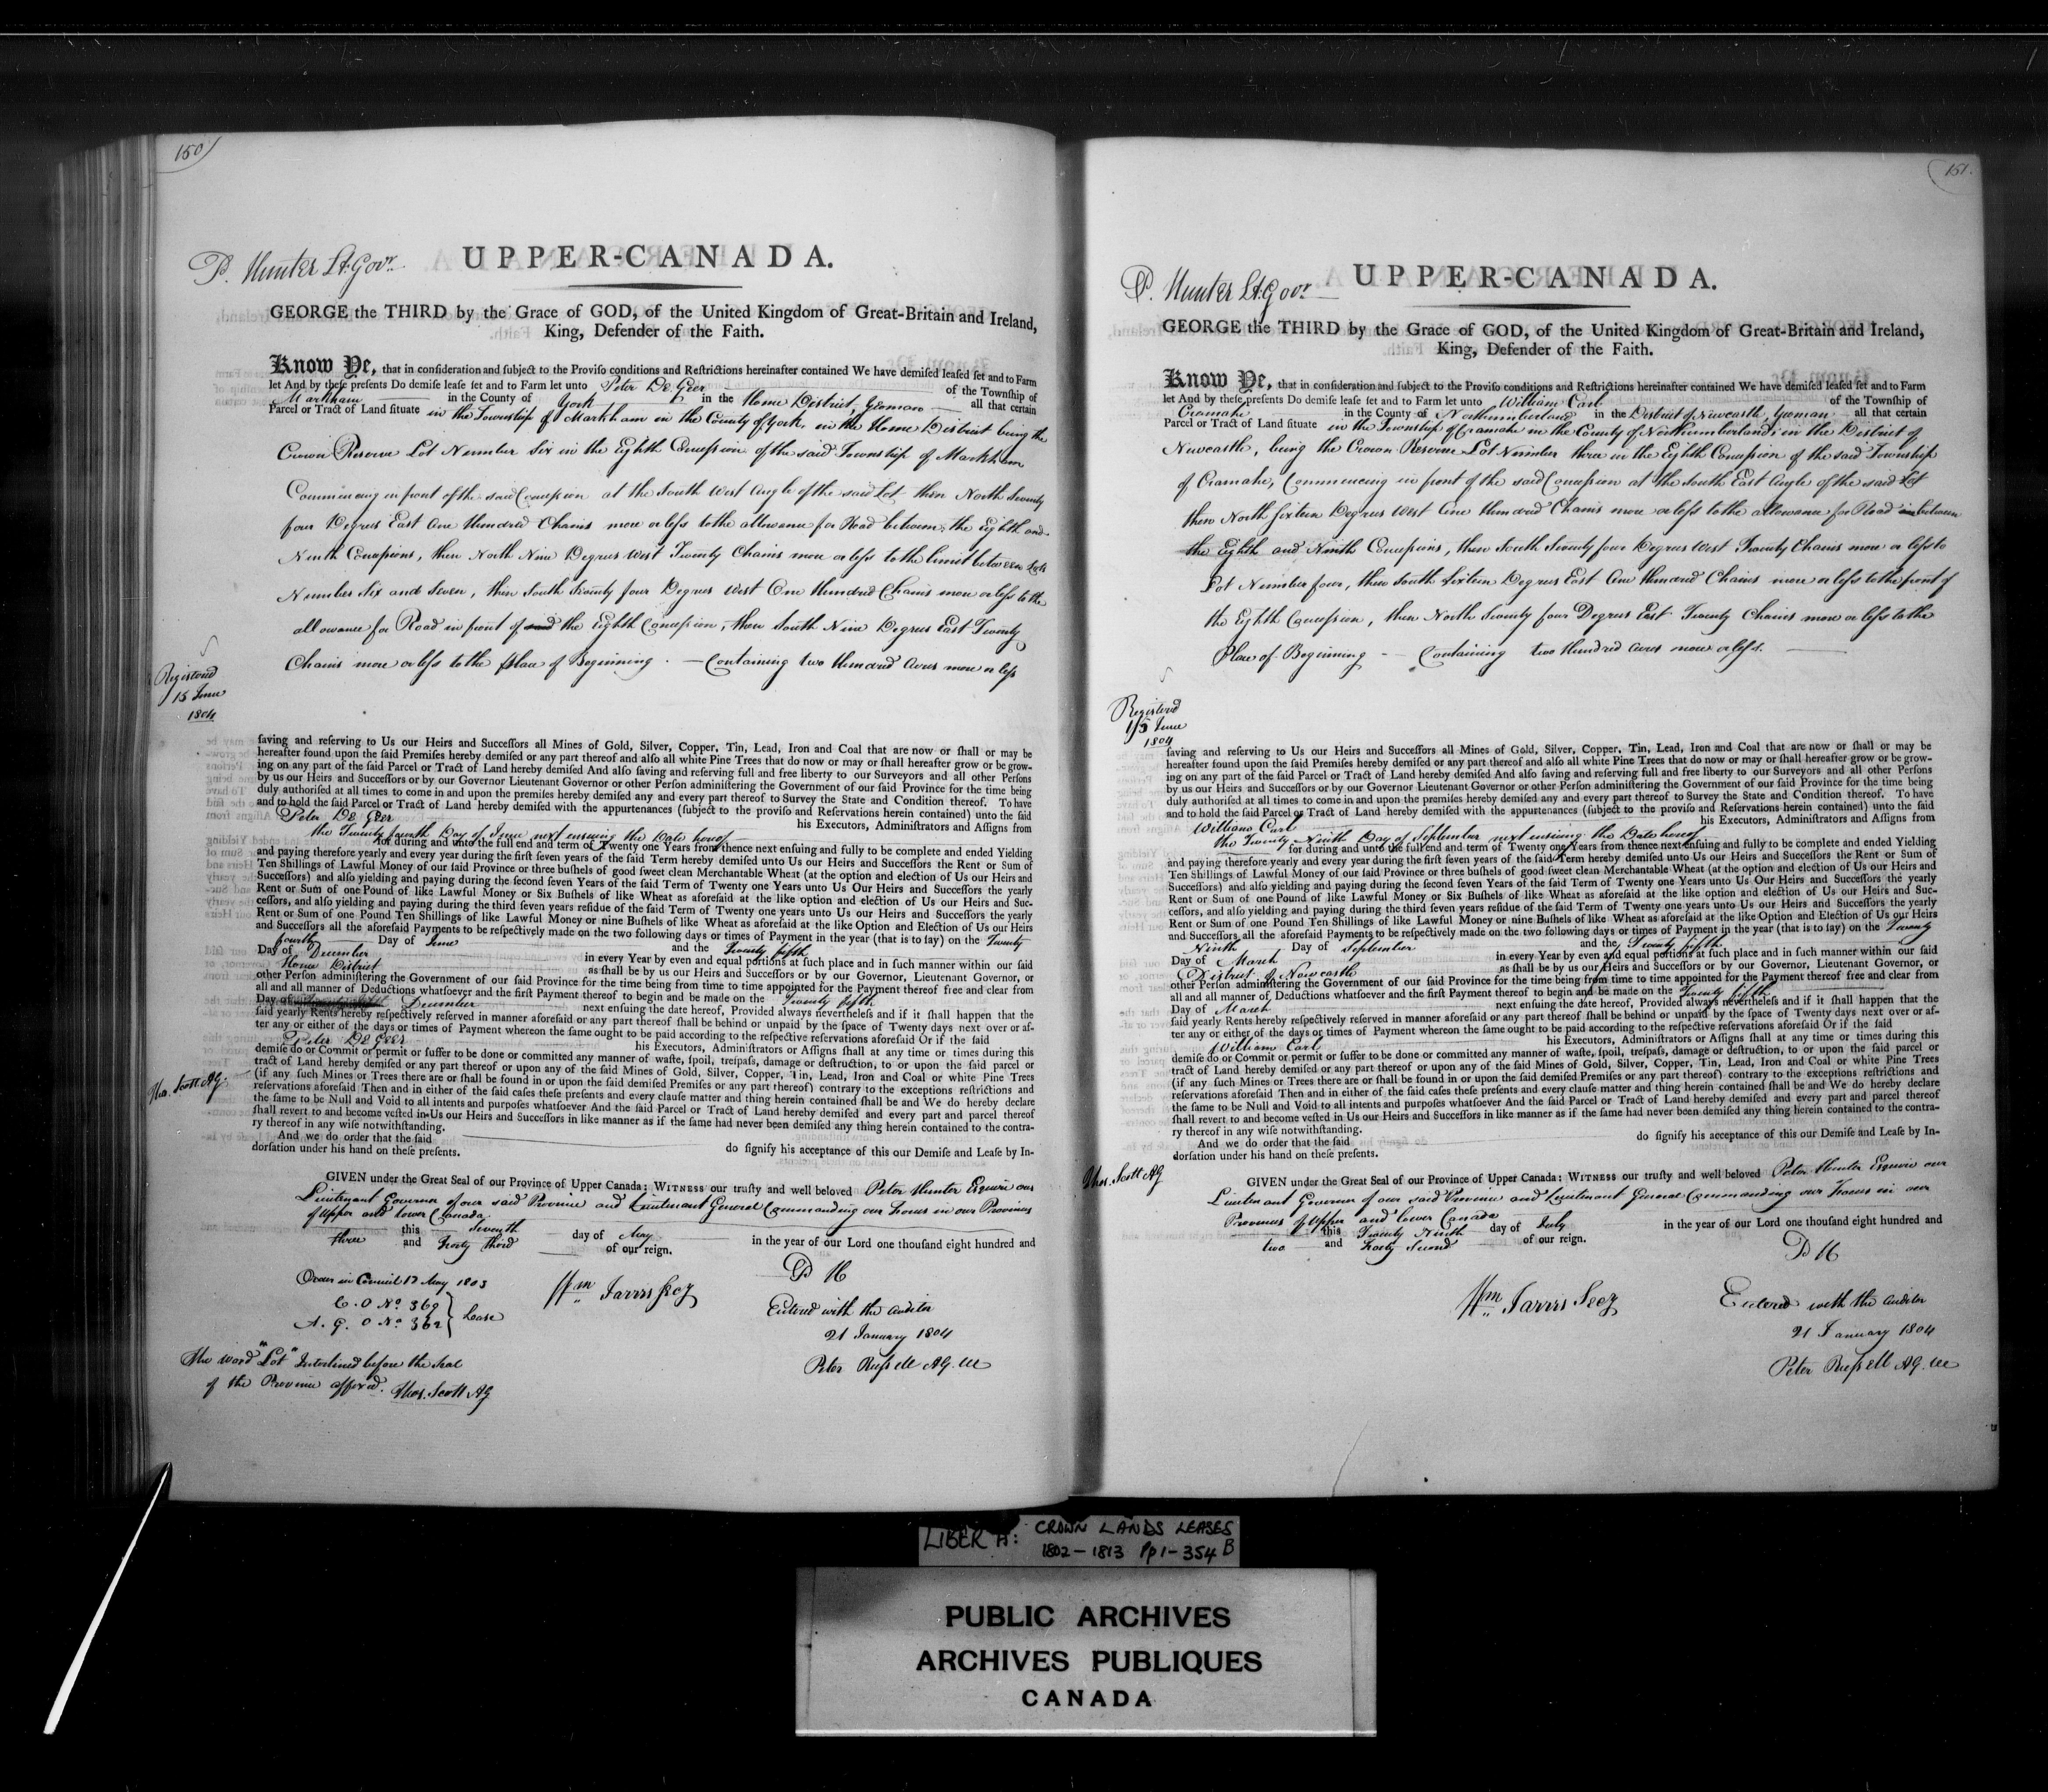 150
P. Hunter Lt. Govr.
UPPER-CANADA.
GEORGE the THIRD by the Grace of GOD, of the United Kingdom of Great-Britain and Ireland,
King, Defender of the Faith.
Know Ye, that in consideration and subject to the Proviso conditions and Restrictions hereinafter contained We have demised leased set and to Farm
let And by these presents Do demise lease set and to Farm let unto Peter De Geer of the Township of
Markham in the County of York in the Home District, Yeoman all that certain
Parcel or Tract of Land situate in the Township of Markham in the County of York, in the Home District being the
Crown Reserve Lot Number Six in the Eighth Concession of the said Township of Markham
Commencing in front of the said Concession at the South West angle of the said Lot then North Seventy
four Degrees East One Hundred Chains more or less to the allowance for Road between the Eighth and
Ninth Concessions, then North Nine Degrees West Twenty Chains more or less to the limit between Lots
Number Six and Seven, then South Seventy four Degrees West One Hundred Chains more or less to the
allowance for Road in front of the Eighth Concession, then South Nine Degrees East Twenty
Chains more or less to the Place of Beginning. — Containing two Hundred Acres more or less
Registered
15 June
1804
saving and reserving to Us our Heirs and Successors all Mines of Gold, Silver, Copper, Tin, Lead, Iron and Coal that are now or shall or may be
hereafter found upon the said Premises hereby demised or any part thereof and also all white Pine Trees that do now or may or shall hereafter grow or be grow-
ing on any part of the said Parcel or Tract of Land hereby demised And also saving and reserving full and free liberty to our Surveyors and all other Persons
by us our Heirs and Successors or by our Governor Lieutenant Governor or other Person administering the Government of our said Province for the time being
duly authorised at all times to come in and upon the premises hereby demised any and every part thereof to Survey the State and Condition thereof. To have
and to hold the said Parcel or Tract of Land hereby demised with the appurtenances (subject to the proviso and Reservations herein contained) unto the said
Peter De Geer his Executors, Administrators and Assigns from
the Twenty fourth Day of June next ensuing the Date hereof
for during and unto the full end and term of Twenty one Years from thence next ensuing and fully to be complete and ended Yielding
and paying therefore yearly and every year during the first seven years of the said Term hereby demised unto Us our Heirs and Successors the Rent or Sum of
Ten Shillings of Lawful Money of our said Province or three bushels of good sweet clean Merchantable Wheat (at the option and election of Us our Heirs and
Successors) and also yielding and paying during the second seven Years of the said Term of Twenty one Years unto Us Our Heirs and Successors the yearly
Rent or Sum of one Pound of like Lawful Money or Six Bushels of like Wheat as aforesaid at the like option and election of Us our Heirs and Suc-
cessors, and also yielding and paying during the third seven years residue of the said Term of Twenty one years unto Us our Heirs and Successors the yearly
Rent or Sum of one Pound Ten Shillings of like Lawful Money or nine Bushels of like Wheat as aforesaid at the like Option and Election of Us our Heirs
and Successors all the aforesaid Payments to be respectively made on the two following days or times of Payment in the year (that is to say) on the Twenty
fourth Day of June and the Twenty fifth
Day of December in every Year by even and equal portions at such place and in such manner within our said
Home District as shall be by us our Heirs and Successors or by our Governor, Lieutenant Governor, or
other Person administering the Government of our said Province for the time being from time to time appointed for the Payment thereof free and clear from
all and all manner of Deductions whatsoever and the first Payment thereof to begin and be made on the Twenty fifth
Day of December next ensuing the date hereof, Provided always nevertheless and if it shall happen that the
said yearly Rents hereby respectively reserved in manner aforesaid or any part thereof shall be behind or unpaid by the space of Twenty days next over or af-
ter any or either of the days or times of Payment whereon the same ought to be paid according to the respective reservations aforesaid Or if the said
Peter De Geer his Executors, Administrators or Assigns shall at any time or times during this
demise do or Commit or permit or suffer to be done or committed any manner of waste, spoil, trespass, damage or destruction, to or upon the said parcel or
tract of Land hereby demised or any part thereof or upon any of the said Mines of Gold, Silver, Copper, Tin, Lead, Iron and Coal or white Pine Trees
(if any such Mines or Trees there are or shall be found in or upon the said demised Premises or any part thereof) contrary to the exceptions restrictions and
reservations aforesaid Then and in either of the said cases these presents and every clause matter and thing herein contained shall be and We do hereby declare
the same to be Null and Void to all intents and purposes whatsoever And the said Parcel or Tract of Land hereby demised and every part and parcel thereof
shall revert to and become vested in Us our Heirs and Successors in like manner as if the same had never been demised any thing herein contained to the contra-
ry thereof in any wise notwithstanding.
Thos. Scott AG.
And we do order that the said do signify his acceptance of this our Demise and Lease by In-
dorsation under his hand on these presents.
GIVEN under the Great Seal of our Province of Upper Canada: WITNESS our trusty and well beloved Peter Hunter Esquire our
Lieutenant Governor of our said Province and Lieutenant General Commanding our Forces in our Provinces
of Upper and Lower Canada
this Seventh day of May in the year of our Lord one thousand eight hundred and
three and Forty third of our reign.
P H
Order in Council 17 May 1803
C. O No. 369
A. G. O No. 362
Lease
Wm Jarvis Secy
Entered with the Auditor
21 January 1804
Peter Russell AG.
The word "Lot" Interlined before the Seal
of the Province affixed. Thos. Scott AG
151.
P. Hunter Lt. Govr.
UPPER-CANADA.
GEORGE the THIRD by the Grace of GOD, of the United Kingdom of Great-Britain and Ireland,
King, Defender of the Faith.
Know Ye, that in consideration and subject to the Proviso conditions and Restrictions hereinafter contained We have demised leased set and to Farm
let And by these presents Do demise lease set and to Farm let unto William Earl of the Township of
Cramahe in the County of Northumberland in the District of Newcastle, Yeoman all that certain
Parcel or Tract of Land situate in the Township of Cramahe in the County of Northumberland, in the District of
Newcastle, being the Crown Reserve Lot Number three in the Eighth Concession of the said Township
of Cramahe, Commencing in front of the said Concession at the South East Angle of the said Lot
then North Sixteen Degrees West One Hundred Chains more or less to the allowance for Road between
the Eighth and Ninth Concessions, then South Seventy four Degrees West Twenty Chains more or less to
Lot Number four, then South Sixteen Degrees East One Hundred Chains more or less to the front of
the Eighth Concession, then North Seventy four Degrees East Twenty Chains more or less to the
Place of Beginning — Containing two Hundred acres more or less.
Registered
15 June
1804
saving and reserving to Us our Heirs and Successors all Mines of Gold, Silver, Copper, Tin, Lead, Iron and Coal that are now or shall or may be
hereafter found upon the said Premises hereby demised or any part thereof and also all white Pine Trees that do now or may or shall hereafter grow or be grow-
ing on any part of the said Parcel or Tract of Land hereby demised And also saving and reserving full and free liberty to our Surveyors and all other Persons
by us our Heirs and Successors or by our Governor Lieutenant Governor or other Person administering the Government of our said Province for the time being
duly authorised at all times to come in and upon the premises hereby demised any and every part thereof to Survey the State and Condition thereof. To have
and to hold the said Parcel or Tract of Land hereby demised with the appurtenances (subject to the proviso and Reservations herein contained) unto the said
William Earl his Executors, Administrators and Assigns from
the Twenty Ninth Day of September next ensuing the Date hereof
for during and unto the full end and term of Twenty one Years from thence next ensuing and fully to be complete and ended Yielding
and paying therefore yearly and every year during the first seven years of the said Term hereby demised unto Us our Heirs and Successors the Rent or Sum of
Ten Shillings of Lawful Money of our said Province or three bushels of good sweet clean Merchantable Wheat (at the option and election of Us our Heirs and
Successors) and also yielding and paying during the second seven Years of the said Term of Twenty one Years unto Us Our Heirs and Successors the yearly
Rent or Sum of one Pound of like Lawful Money or Six Bushels of like Wheat as aforesaid at the like option and election of Us our Heirs and Suc-
cessors, and also yielding and paying during the third seven years residue of the said Term of Twenty one years unto Us our Heirs and Successors the yearly
Rent or Sum of one Pound Ten Shillings of like Lawful Money or nine Bushels of like Wheat as aforesaid at the like Option and Election of Us our Heirs
and Successors all the aforesaid Payments to be respectively made on the two following days or times of Payment in the year (that is to say) on the Twenty
Ninth Day of September and the Twenty fifth
Day of March in every Year by even and equal portions at such place and in such manner within our said
District of Newcastle as shall be by us our Heirs and Successors or by our Governor, Lieutenant Governor, or
other Person administering the Government of our said Province for the time being from time to time appointed for the Payment thereof free and clear from
all and all manner of Deductions whatsoever and the first Payment thereof to begin and be made on the Twenty fifth
Day of March next ensuing the date hereof, Provided always nevertheless and if it shall happen that the
said yearly Rents hereby respectively reserved in manner aforesaid or any part thereof shall be behind or unpaid by the space of Twenty days next over or af-
ter any or either of the days or times of Payment whereon the same ought to be paid according to the respective reservations aforesaid Or if the said
William Earl his Executors, Administrators or Assigns shall at any time or times during this
demise do or Commit or permit or suffer to be done or committed any manner of waste, spoil, trespass, damage or destruction, to or upon the said parcel or
tract of Land hereby demised or any part thereof or upon any of the said Mines of Gold, Silver, Copper, Tin, Lead, Iron and Coal or white Pine Trees
(if any such Mines or Trees there are or shall be found in or upon the said demised Premises or any part thereof) contrary to the exceptions restrictions and
reservations aforesaid Then and in either of the said cases these presents and every clause matter and thing herein contained shall be and We do hereby declare
the same to be Null and Void to all intents and purposes whatsoever And the said Parcel or Tract of Land hereby demised and every part and parcel thereof
shall revert to and become vested in Us our Heirs and Successors in like manner as if the same had never been demised any thing herein contained to the contra-
ry thereof in any wise notwithstanding.
And we do order that the said do signify his acceptance of this our Demise and Lease by In-
dorsation under his hand on these presents.
Thos. Scott AG
GIVEN under the Great Seal of our Province of Upper Canada: WITNESS our trusty and well beloved Peter Hunter Esquire our
Lieutenant Governor of our said Province and Lieutenant General Commanding our Forces in our
Provinces of Upper and Lower Canada
this Twenty Ninth day of July in the year of our Lord one thousand eight hundred and
two and Forty Second of our reign.
P H
Wm Jarvis Secy
Entered with the Auditor
21 January 1804
Peter Russell AG.
LIBER A: CROWN LANDS LEASES
1802-1813 Pp 1-354 B
PUBLIC ARCHIVES
ARCHIVES PUBLIQUES
CANADA